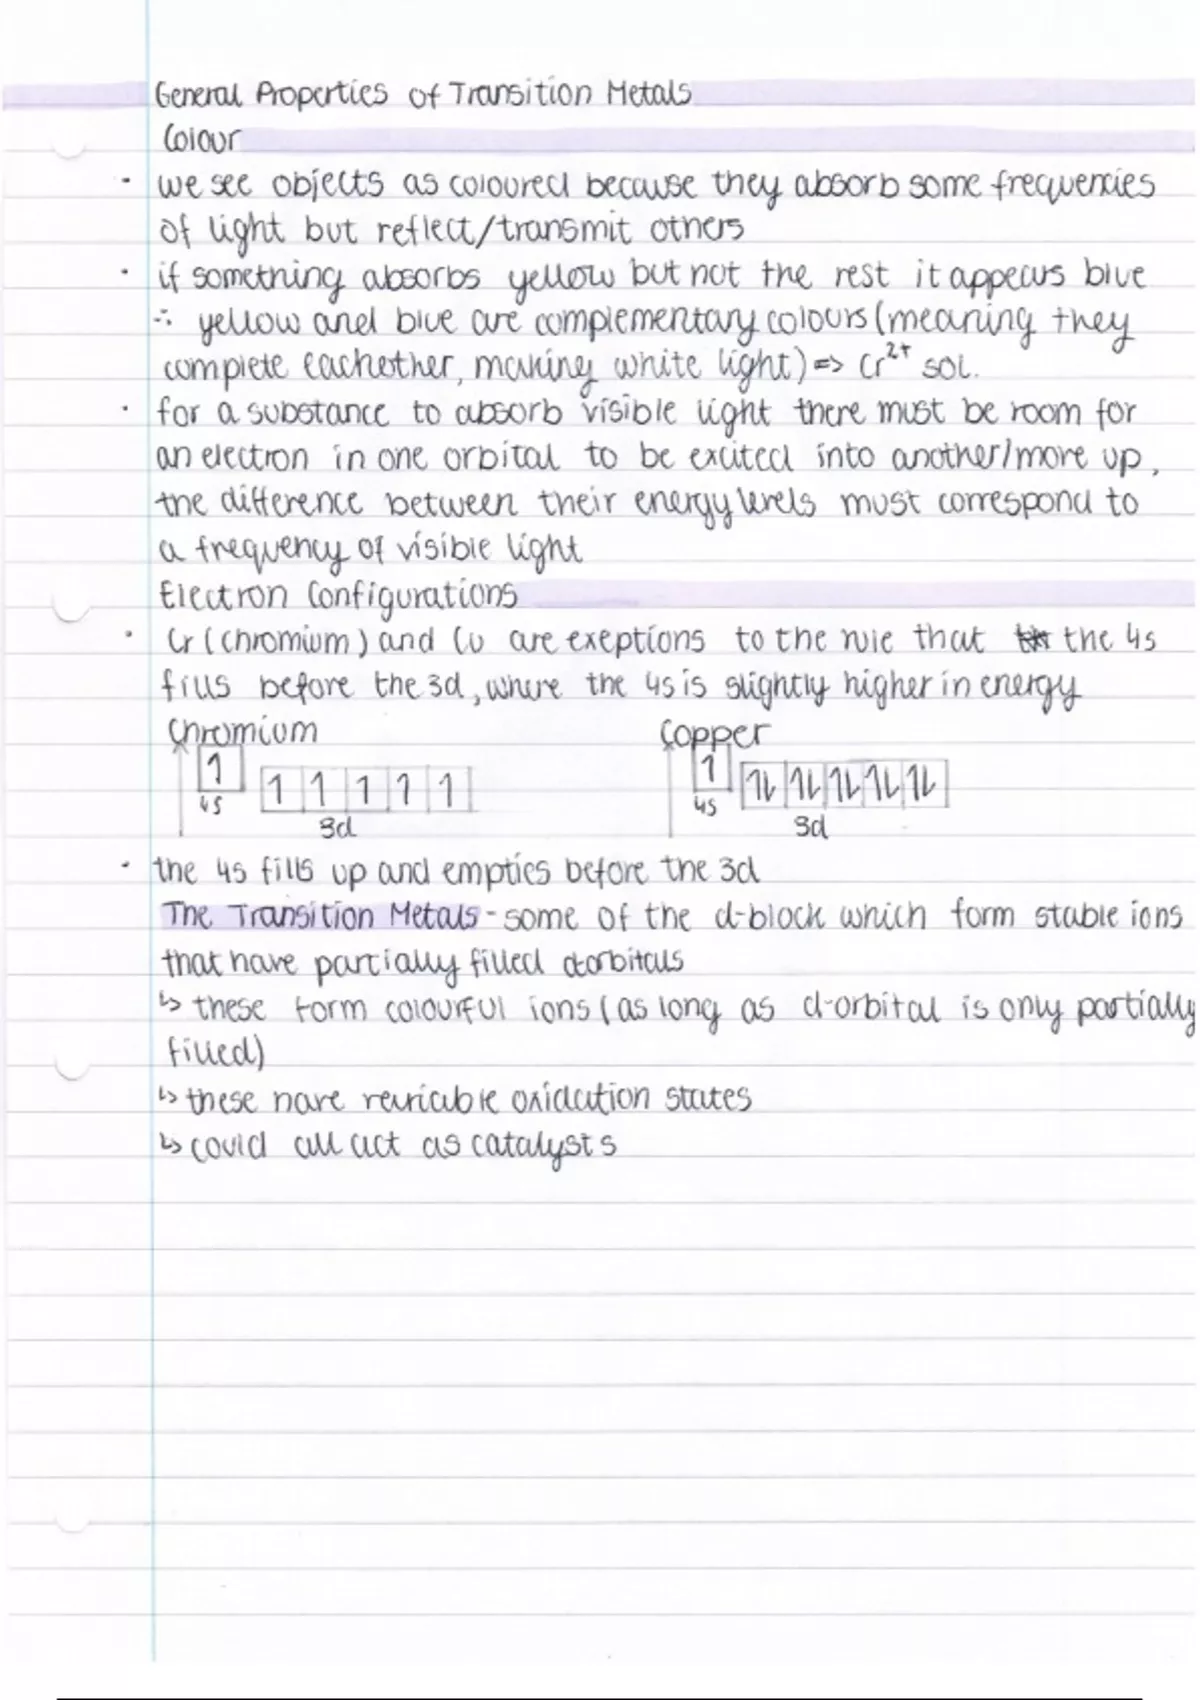 General Properties of Transition Metals
Colour
· we see objects as coloured because they absorb some frequencies
of light but reflect/transmit others
· if something absorbs yellow but not the rest it appears blue
∴ yellow and blue are complementary colours (meaning they
complete eachother, making white light) => Cr²⁺ sol.
· for a substance to absorb visible light there must be room for
an electron in one orbital to be excited into another/more up,
the difference between their energy levels must correspond to
a frequency of visible light
Electron Configurations
· Cr (chromium) and Cu are exeptions to the rule that the 4s
fills before the 3d, where the 4s is slightly higher in energy
Chromium Copper
1 1 1 1 1 1 1 1L 1L 1L 1L 1L
4s 3d 4s 3d
· the 4s fills up and empties before the 3d
The Transition Metals - some of the d-block which form stable ions
that have partially filled d orbitals
↳ these form colourful ions (as long as d-orbital is only partially
filled)
↳ these have variable oxidation states
↳ could all act as catalysts